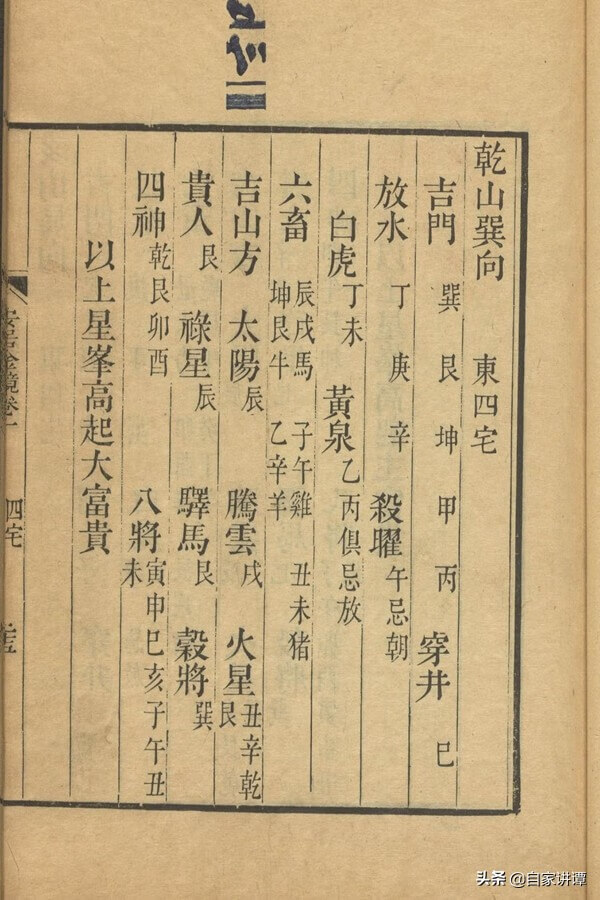 乾山巽向 東四宅
吉門 巽 艮 坤 甲 丙 穿井 巳
放水 丁 庚 辛 殺曜 午忌朝
白虎 丁未 黃泉 乙丙俱忌放
六畜 辰戌馬 子午雞 丑未猪
坤艮牛 乙辛羊
吉山方 太陽 辰 騰雲 戌 火星 丑辛乾
艮
貴人 艮 祿星 辰 驛馬 艮 穀將 巽
四神 乾艮卯酉 八將 寅申巳亥子午丑
未
以上星峯高起大富貴
卷一
四宅
头条 @自家讲谭